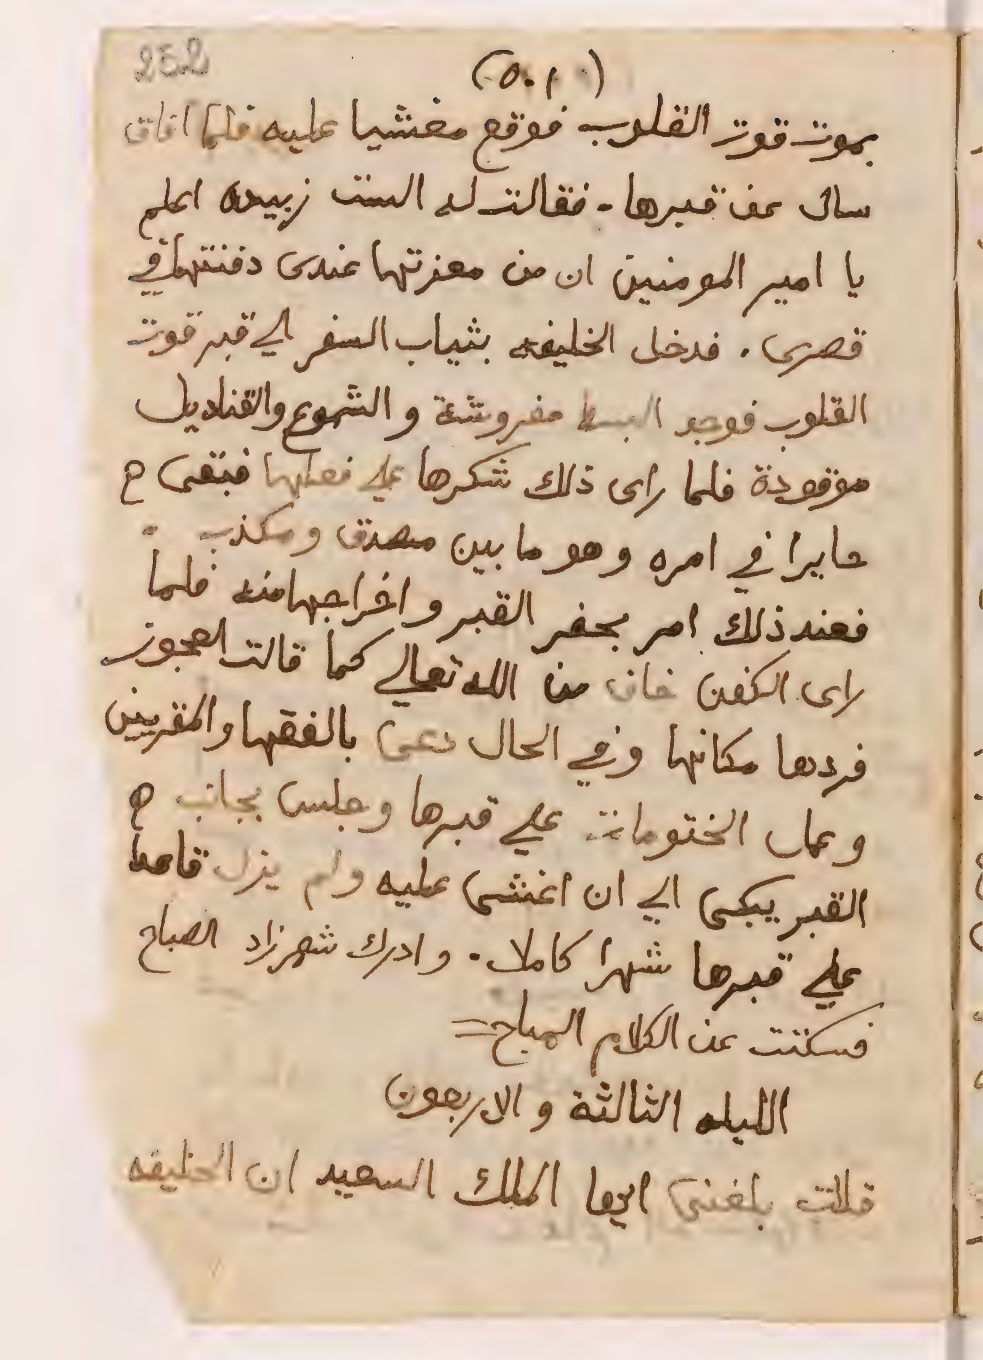 252
(٥٠١)
بموت قوت القلوب فوقع مغشيا عليه فلما افاق
سال عن قبرها . فقالت له الست زبيده اعلم
يا امير المومنين ان من معزتها عندى دفنتها في
قصرى . فدخل الخليفه بثياب السفر الي قبر قوت
القلوب فوجد البسط مفروشة و الشموع والقناديل
موقودة فلما راى ذلك شكرها علي فعلها فبقى ح
حايرا في امره وهو ما بين مصدق ومكذب .
فعند ذلك امر بحفر القبر واخراجها منه فلما
راى الكفن خاف من الله تعالي كما قالت العجوز
فردها مكانها وفي الحال دعى بالفقها والمقريين
وعمل الختومات علي قبرها وجلس بجانب ح
القبر يبكى الي ان اغشى عليه ولم يزل قاعدا
علي قبرها شهرا كاملا . وادرك شهرزاد الصباح
فسكتت عن الكلام المباح=
الليله الثالثة و الاربعون
قالت بلغنى ايها الملك السعيد ان الخليفه